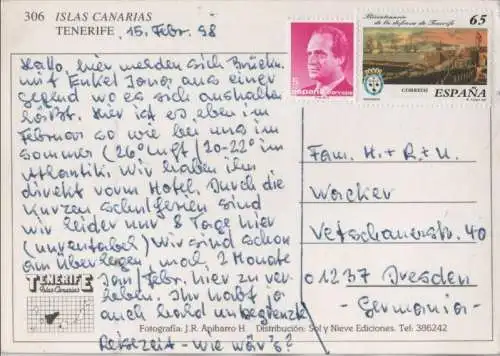 306 ISLAS CANARIAS
TENERIFE
15. Febr. 98
Hallo, hier melden sich Brückn.
mit Enkel Jona aus einer
Gegend wo es sich aushalten
läßt. Hier ist es eben im
Februar so wie bei uns im
Sommer (26° Luft / 20-22° im
Atlantik. Wir haben ihn
direkt vorm Hotel. Durch die
kurzen Schulferien sind
wir leider nur 8 Tage hier
(unrentabel) Wir sind schon
am überlegen mal 2 Monate
Jan/Febr. hier zu ver-
leben. Ihr habt ja
auch bald unbegrenzt
Reisezeit - wie wär's?
TENERIFE
Islas Canarias
Fotografía: J.R. Apibarro H. Distribución: Sol y Nieve Ediciones. Tel: 386242
5
ESPAÑA CORREOS
Bicentenario
de la defensa de Tenerife
65
CORREOS
ESPAÑA
Fam. H. + R. + U.
Wacker
Vetschauerstr. 40
01237 Dresden
- Germania -